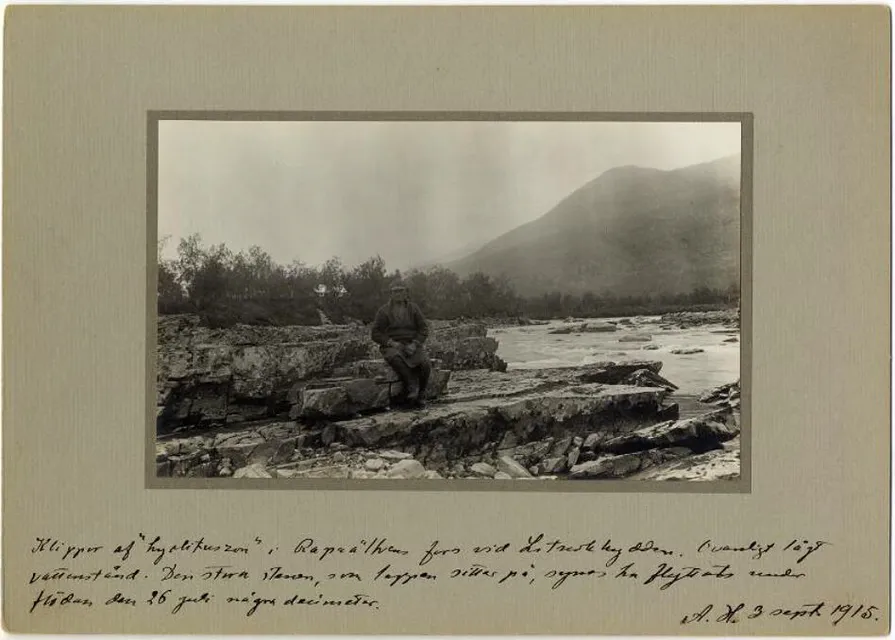 Klippor af "hyolituszon" i Rapaälfvens fors vid Litnokhyddan. Ovanligt lågt
vattenstånd. Den stora stenen, som lappen sitter på, synes ha flyttats under
flödan den 26 juli några decimeter.
A. H. 3 sept. 1915.